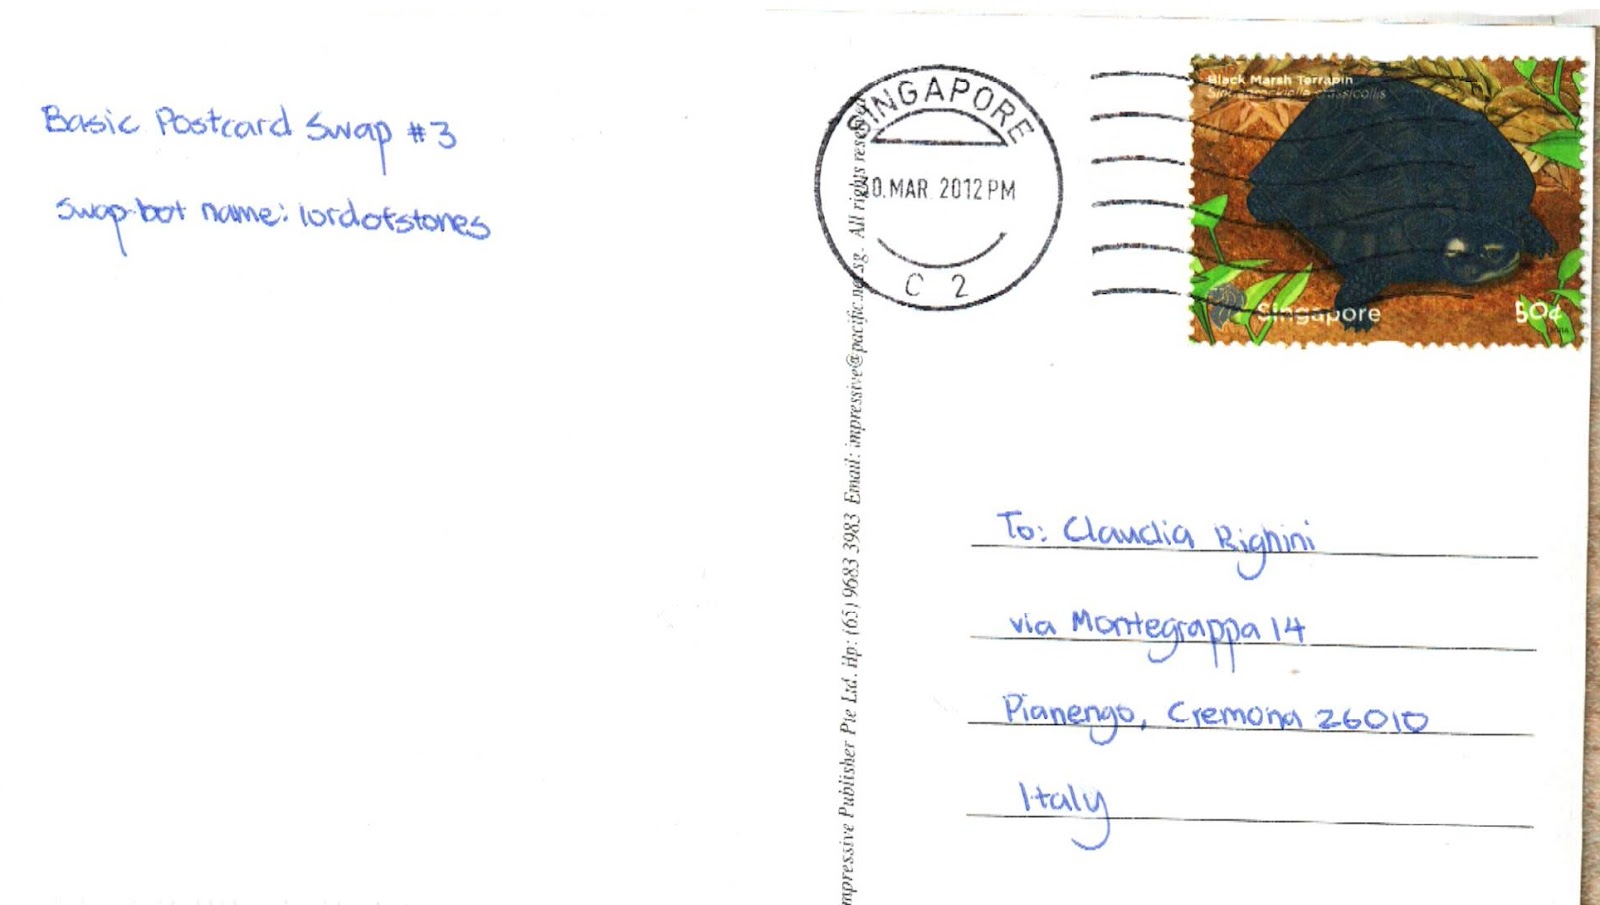 Basic Postcard Swap #3
swap-bot name: lordofstones
SINGAPORE
0.MAR 2012PM
C 2
Black Marsh Terrapin
Siebenrockiella crassicollis
Singapore
50¢
mpressive Publisher Pte Ltd. Hp: (65) 9683 3983 Email: impressive@pacific.net.sg. All rights reserved
To: Claudia Righini
via Montegrappa 14
Pianengo, Cremona 26010
Italy